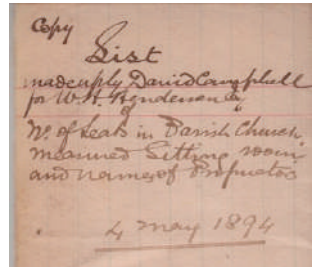 Copy
List
made up by David Campbell
for W. H. Henderson Esq
of
No of Seats in Parish Church,
measured Sitting room
and names of Proprietors
4 May 1894